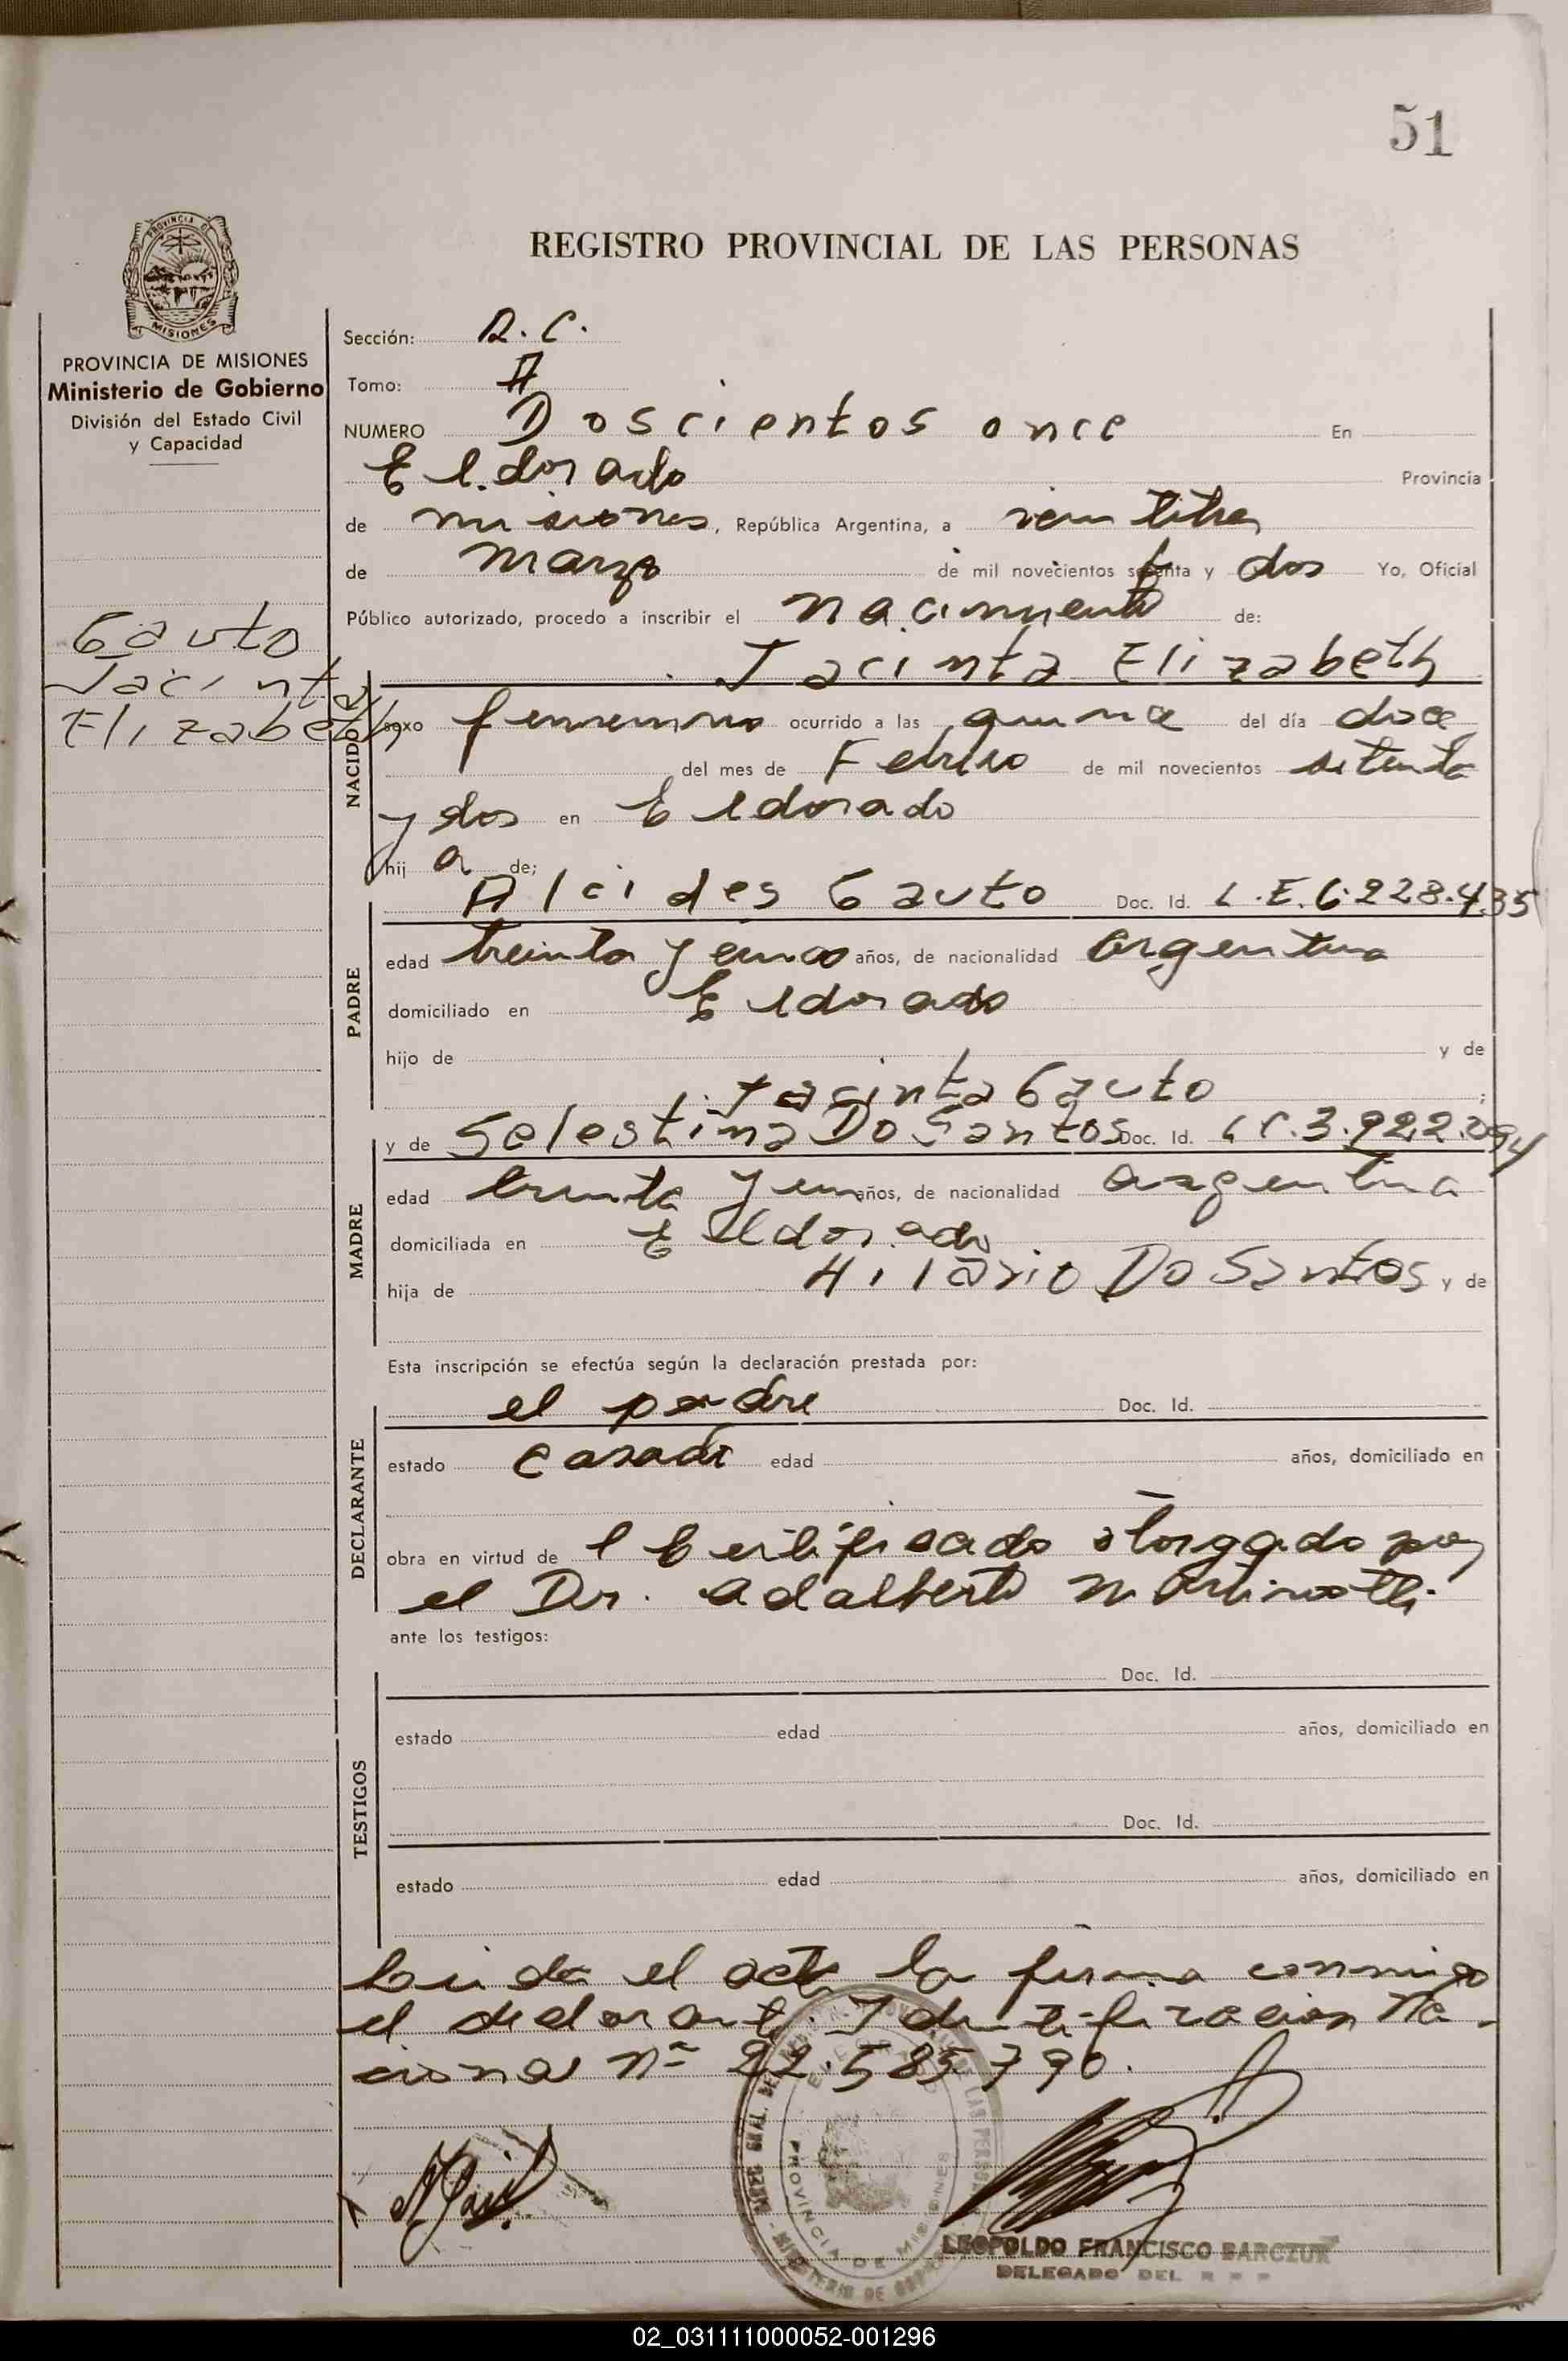 51
REGISTRO PROVINCIAL DE LAS PERSONAS
PROVINCIA DE MISIONES
Ministerio de Gobierno
División del Estado Civil
y Capacidad
Gauto
Jacinta
Elizabeth
Sección: R. C.
Tomo: A
NUMERO Doscientos once En
Eldorado Provincia
de misiones, República Argentina, a veintitres
de Marzo de mil novecientos setenta y dos Yo, Oficial
Público autorizado, procedo a inscribir el nacimiento de:
Jacinta Elizabeth
NACIDO
sexo femenino ocurrido a las quince del día doce
del mes de Febrero de mil novecientos setenta
y dos en Eldorado
hij a de;
Alcides Gauto Doc. Id. L.E.6.228.435
PADRE
edad treinta y cinco años, de nacionalidad argentina
domiciliado en Eldorado
hijo de y de
Jacinta Gauto ;
y de Selestina Do Santos Doc. Id. LC.3.922.094
MADRE
edad treinta y un años, de nacionalidad argentina
domiciliada en Eldorado
hija de Hilario Do Santos y de
Esta inscripción se efectúa según la declaración prestada por:
el padre Doc. Id.
DECLARANTE
estado casado edad años, domiciliado en
obra en virtud de l Certificado otorgado por
el Dr. Adalberto
ante los testigos:
Doc. Id.
TESTIGOS
estado edad años, domiciliado en
Doc. Id.
estado edad años, domiciliado en
Leida el acta la firma conmigo
el declarante. Identificacion Na-
cional Nº 22.585.790.
PROVINCIA DE MISIONES
LEOPOLDO FRANCISCO BARCZUK
DELEGADO DEL R P P
02_031111000052-001296